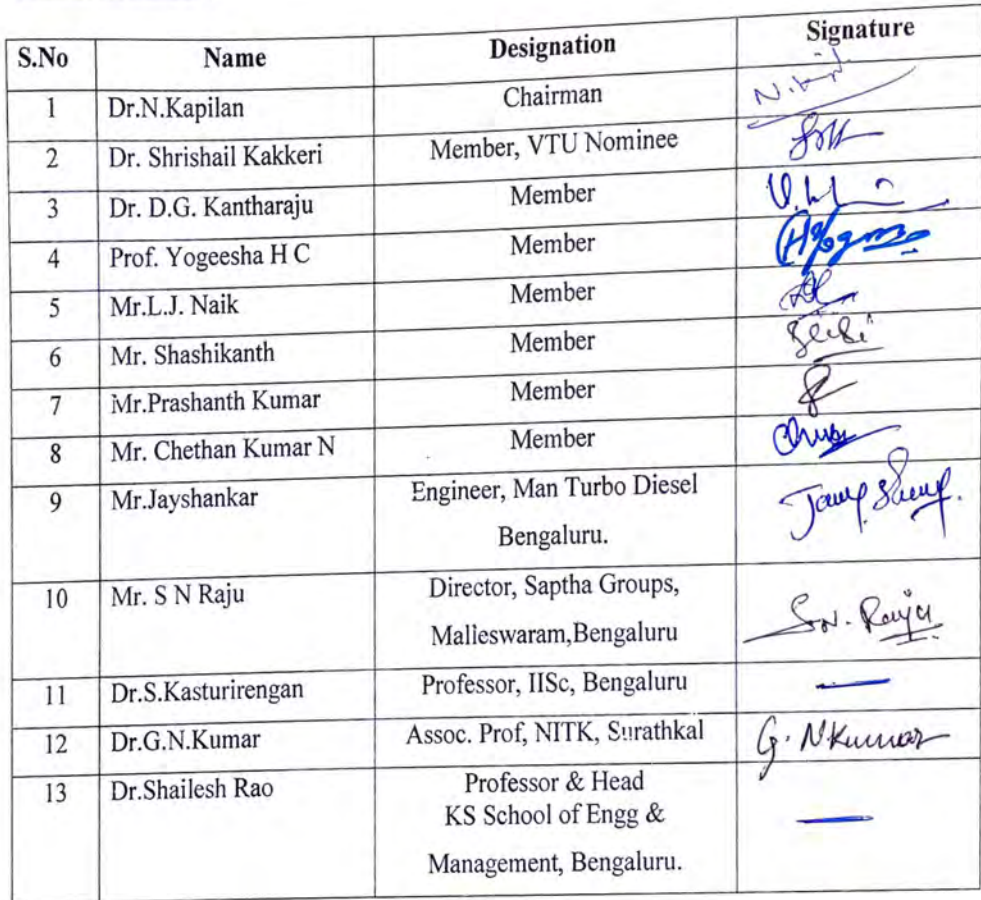 S.No Name Designation Signature
1 Dr.N.Kapilan Chairman
2 Dr. Shrishail Kakkeri Member, VTU Nominee
3 Dr. D.G. Kantharaju Member
4 Prof. Yogeesha H C Member
5 Mr.L.J. Naik Member
6 Mr. Shashikanth Member
7 Mr.Prashanth Kumar Member
8 Mr. Chethan Kumar N Member
9 Mr.Jayshankar Engineer, Man Turbo Diesel
Bengaluru.
10 Mr. S N Raju Director, Saptha Groups, S.N. Raju
Malleswaram,Bengaluru
11 Dr.S.Kasturirengan Professor, IISc, Bengaluru
12 Dr.G.N.Kumar Assoc. Prof, NITK, Surathkal G. NKumar
13 Dr.Shailesh Rao Professor & Head
KS School of Engg &
Management, Bengaluru.